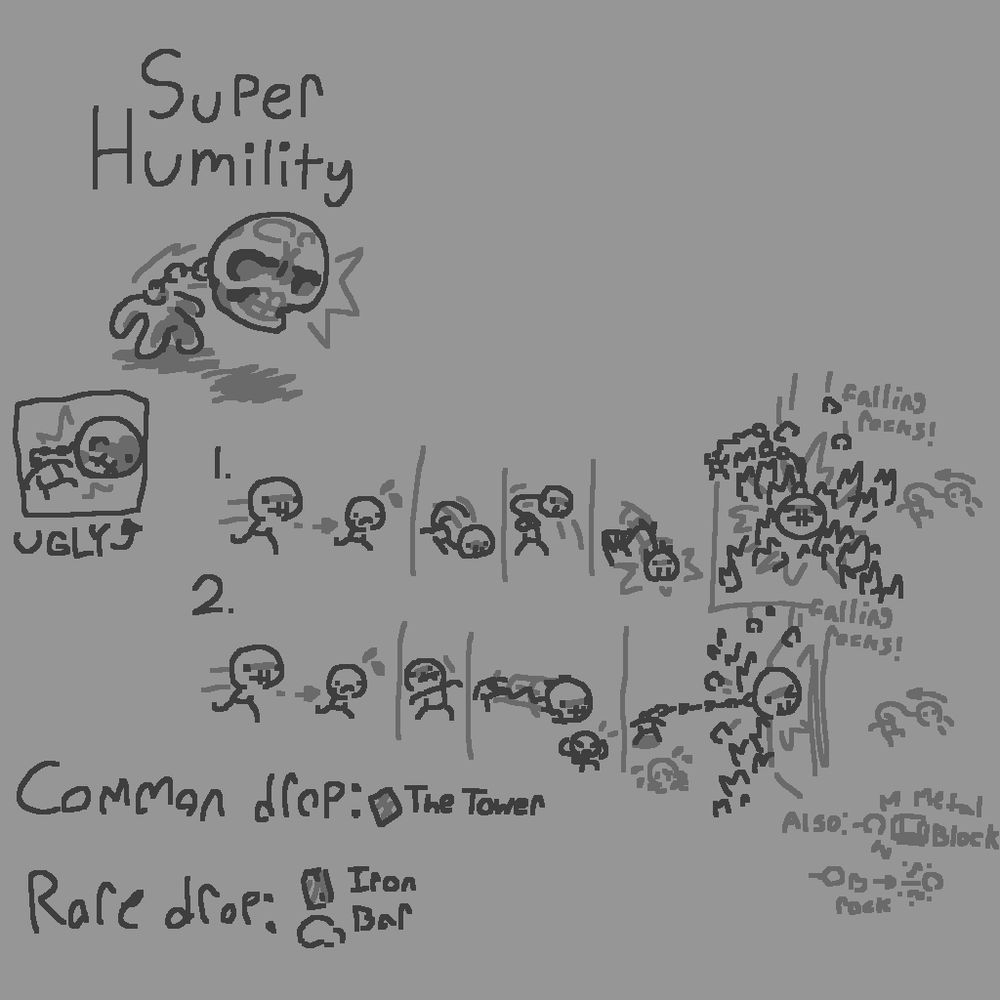 Super
Humility
UGLY
1.
falling
rocks!
2.
falling
rocks!
Common drop: The Tower
Also: Metal
Block
rock
Rare drop: Iron
Bar